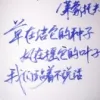 草在结它的种子
风在摇它的叶子
我们站着不说话